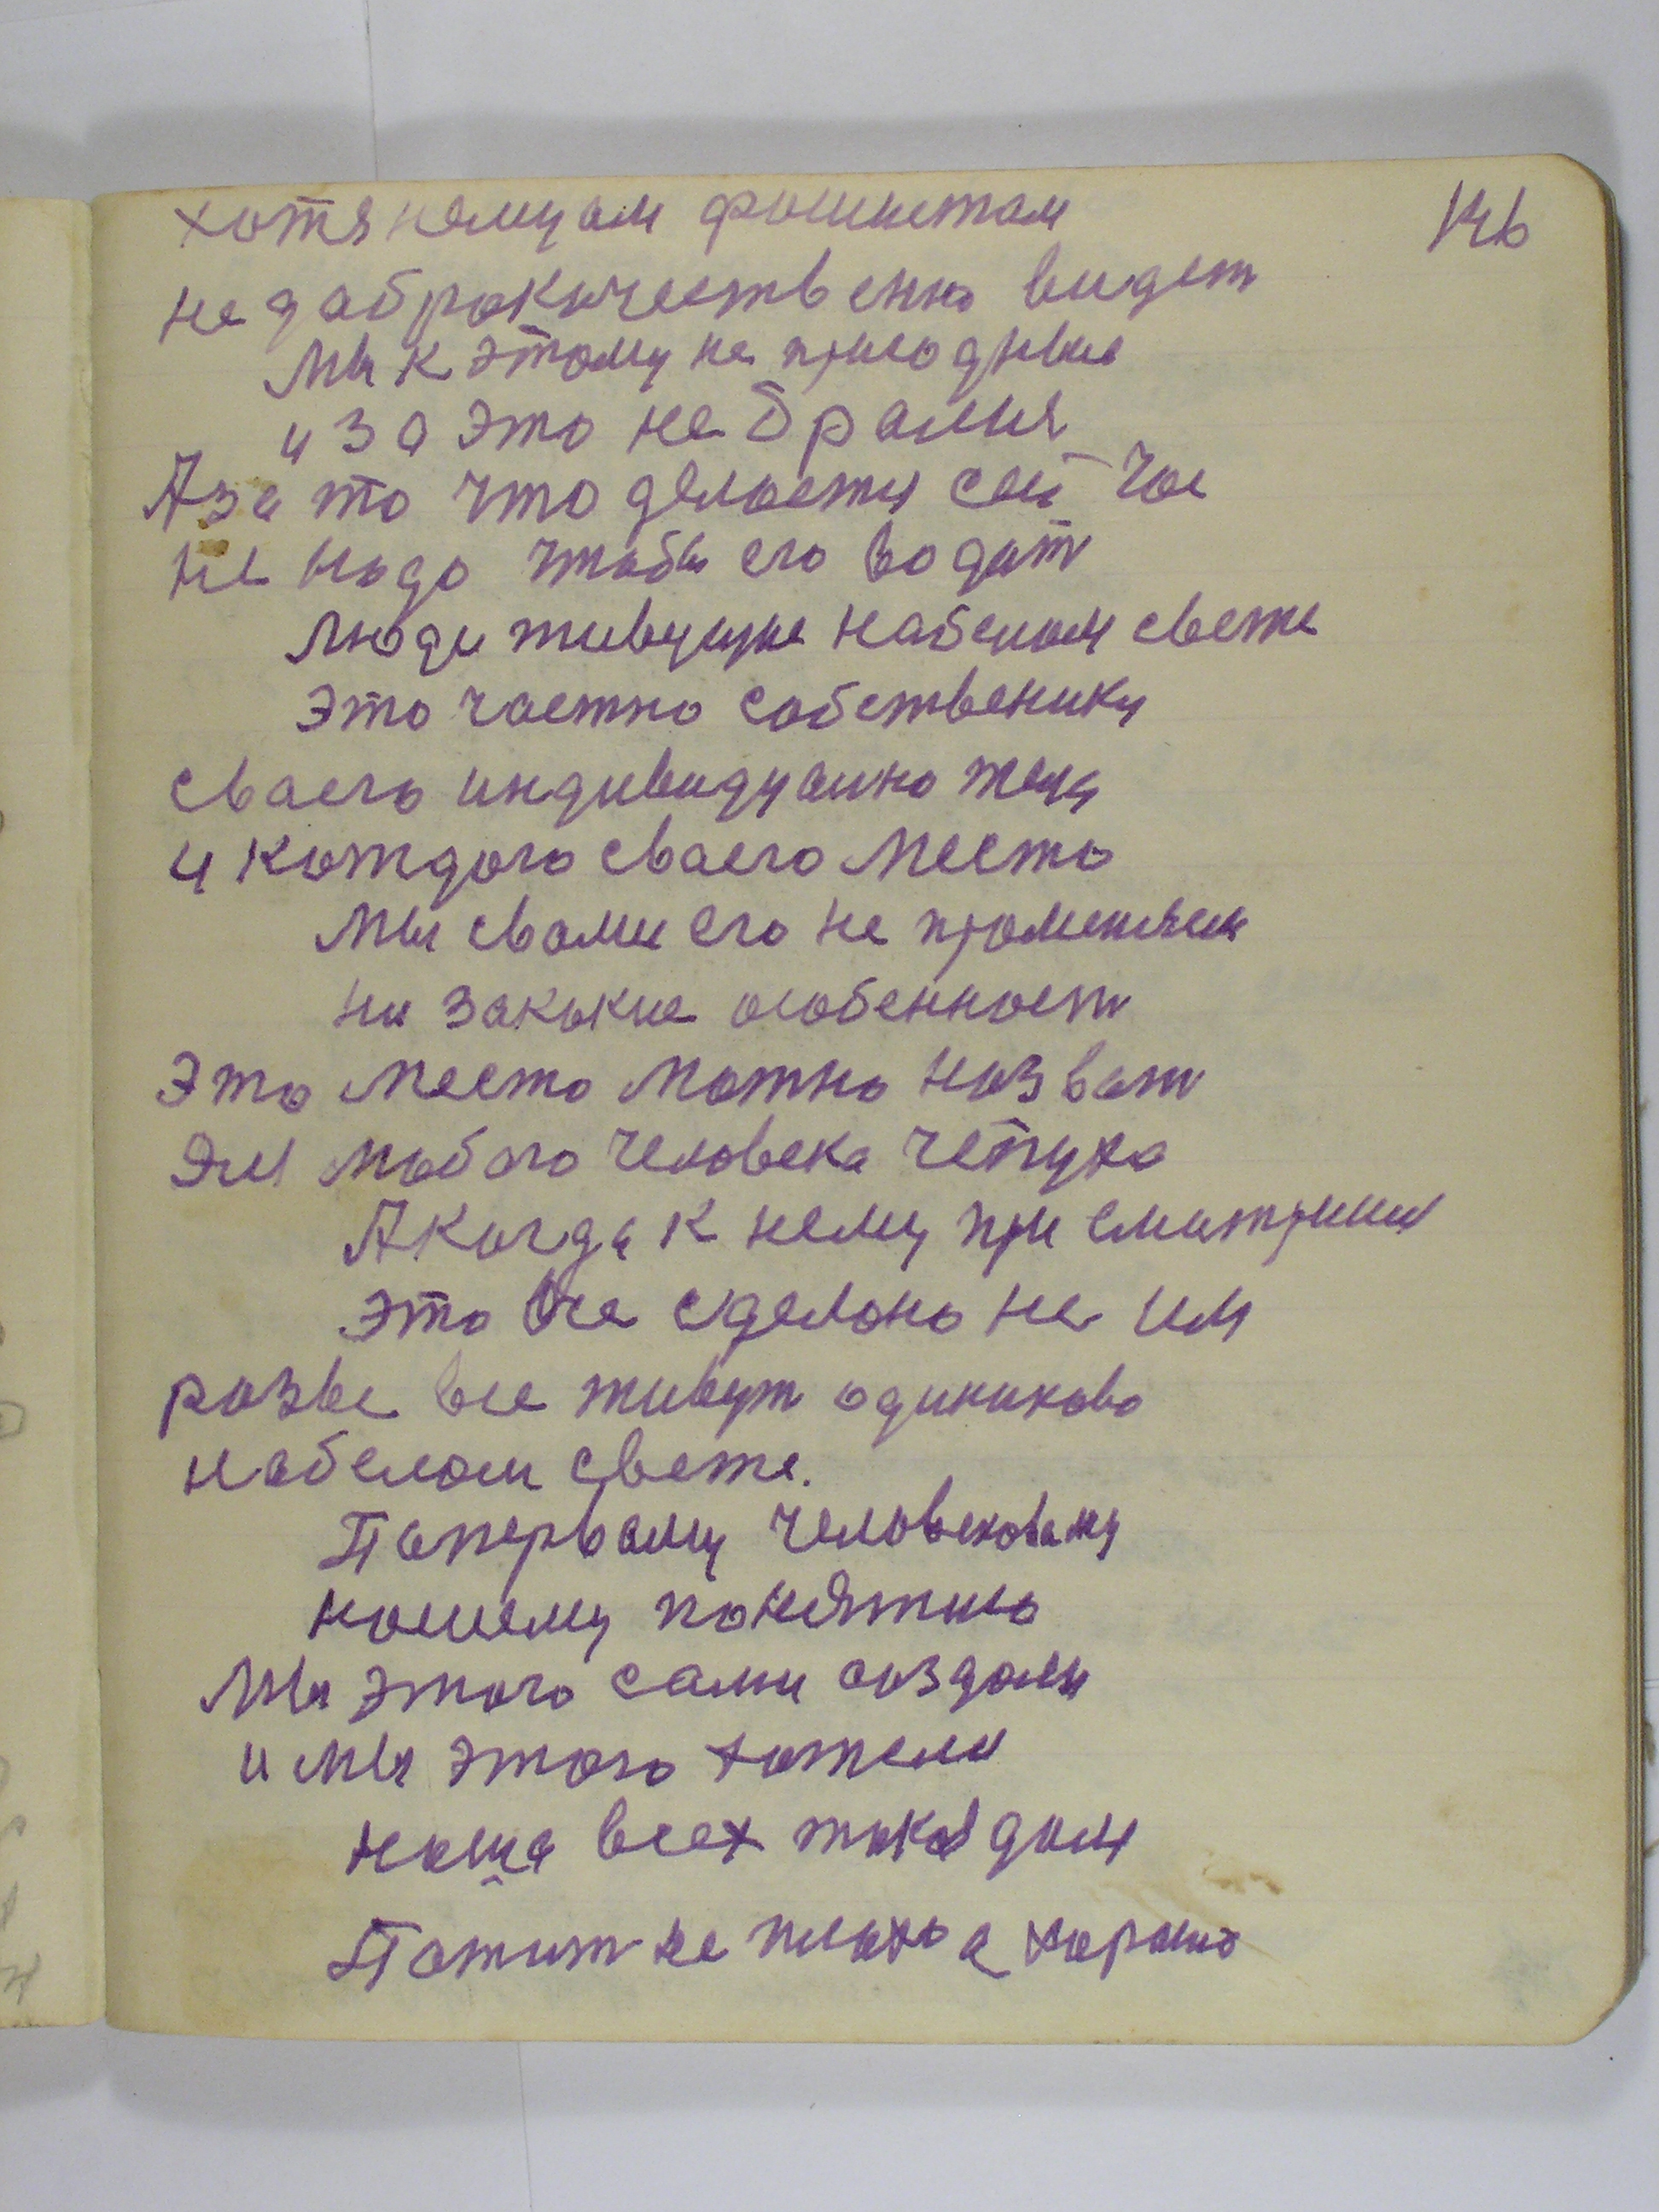 146
хотя немцам фашистам
не даброкичественно видет
Мы к этому не пригодные
и за это не бралися
А за то что делается сей час
не надо чтобы его водит
Люди живущие набелом свете
это частно собственики
сваего индивидуално тела
и каждого сваего место
Мы свами его не променяем
ни закакие особенност
Это место можно назват
для любого человека чепуха
А когда к нему присматриш
это все сделано не им
разве все живут одинаково
набелом свете.
Папервому человековаму
нашему понятию
Мы этого сами создали
и мы этого хотели
наша всех такая дам
Пажит не плоха а хорошо